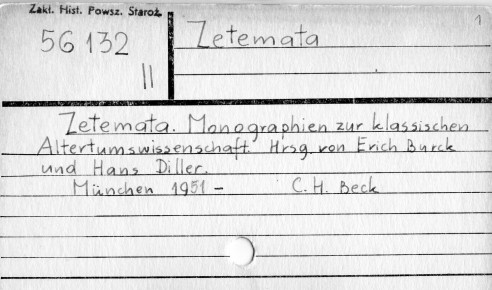 Zakł. Hist. Powsz. Staroż.
1
56132
II
Zetemata
Zetemata. Monographien zur klassischen
Altertumswissenschaft. Hrsg. von Erich Burck
und Hans Diller.
München 1951 – C. H. Beck